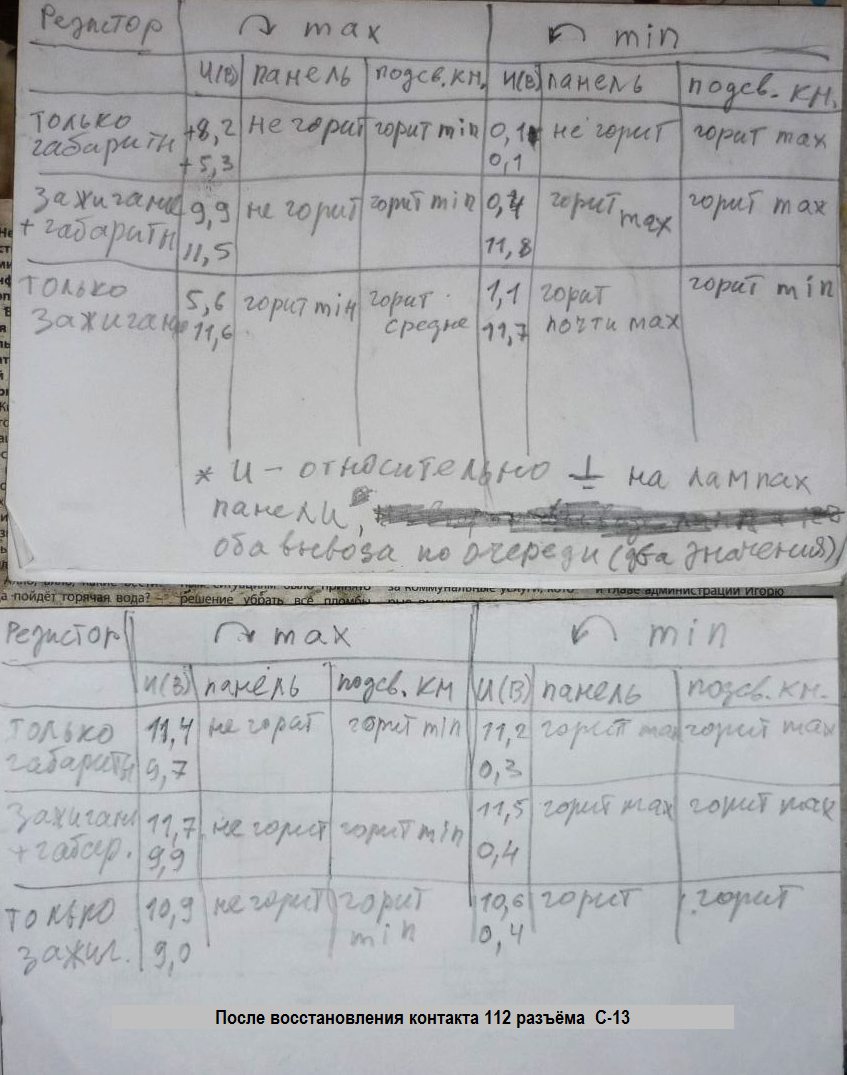 Резистор ↷ max ↶ min
И(В) панель подсв.кн. И(В) панель подсв. кн.
только +8,2 не горит горит min 0,1 не горит горит max
габариты +5,3 0,1
зажигание 9,9 не горит горит min 0,4 горит max горит max
+ габариты 11,5 11,8
только 5,6 горит min горит 1,1 горит горит min
зажигание 11,6 средне 11,7 почти max
* И – относительно ⏚ на лампах
панели,
оба вывоза по очереди (два значения)
а пойдёт горячая вода? – решение убрать все пломбы
и главе администрации Игорю
Резистор ↷ max ↶ min
И(В) панель подсв. кн И(В) панель подсв. кн.
только 11,4 не горит горит min 11,2 горит max горит max
габариты 9,7 0,3
зажиган 11,7 не горит горит min 11,5 горит max горит max
+ габар. 9,9 0,4
только 10,9 не горит горит 10,6 горит горит
зажиг. 9,0 min 0,4
После восстановления контакта 112 разъёма С-13